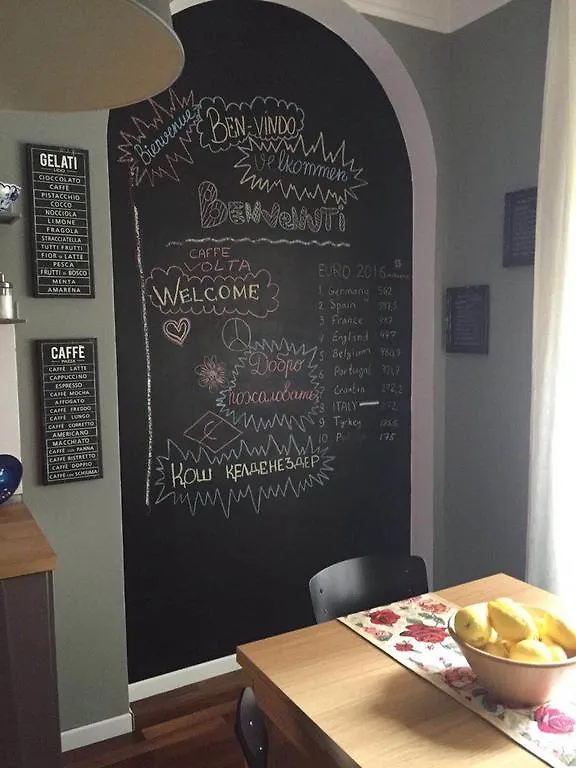 GELATI
CIOCCOLATO
CAFFÈ
PISTACCHIO
COCCO
NOCCIOLA
LIMONE
FRAGOLA
STRACCIATELLA
TUTTI FRUTTI
FIOR DI LATTE
PESCA
FRUTTI DI BOSCO
MENTA
AMARENA
CAFFÈ
CAFFÈ LATTE
CAPPUCCINO
ESPRESSO
CAFFÈ MOCHA
AFFOGATO
CAFFÈ FREDDO
CAFFÈ LUNGO
CAFFÈ CORRETTO
AMERICANO
MACCHIATO
CAFFÈ CON PANNA
CAFFÈ RISTRETTO
CAFFÈ DOPPIO
CAFFÈ CON SCHIUMA
Bienvenue
BEN-VINDO
Velkommen
BENVENUTI
CAFFE
VOLTA
WELCOME
Добро
пожаловать
КОШ КЕЛДЕНЕЗДЕР
EURO 2016
1 Germany 562
2 Spain
3 France
4 England 477
5 Belgium
Portugal
Croatia 272,2
ITALY
9 Turkey
10 175